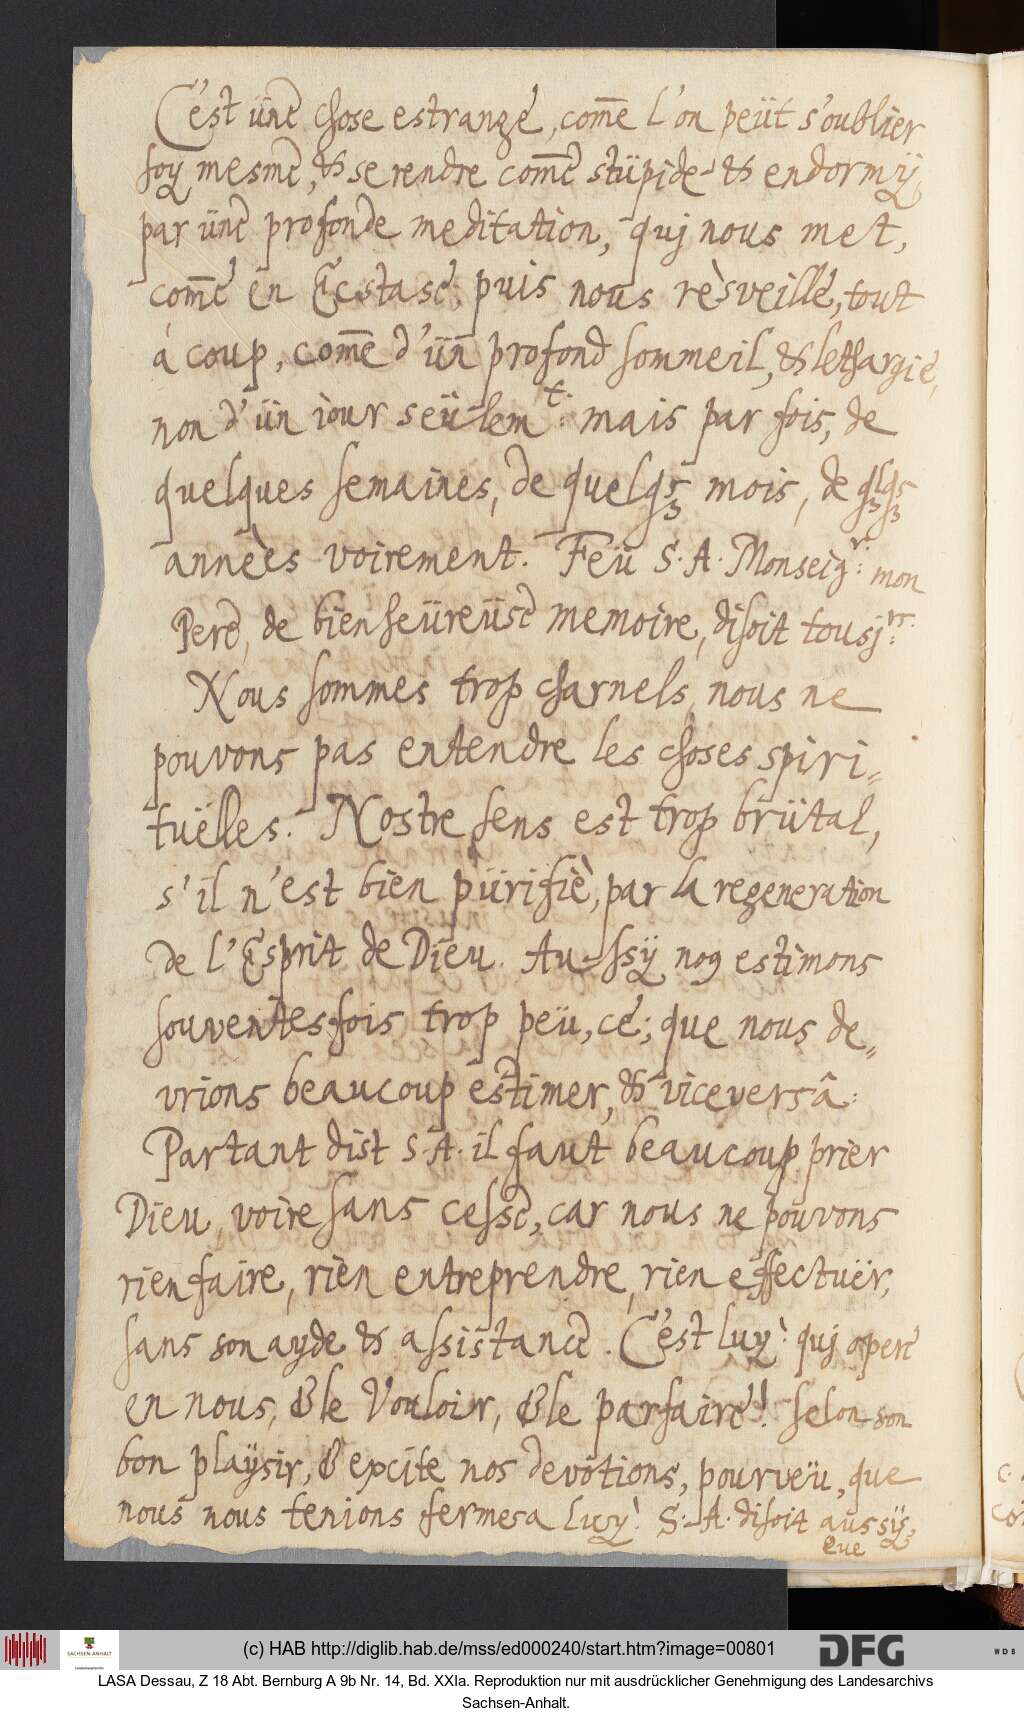 C'est üne chose estrange, com̄e l'on peüt s'oublier
soy mesme, & se rendre com̄e stüpide & endormÿ,
par üne profonde meditation, quj nous met,
com̄e en Ecstase; puis nous rèsveille, tout
à coup, com̄e d'ün profond sommeil, & lethargie,
non d'ün iour seülem.t: mais par fois, de
quelques semaines, de quelqs mois, de qlqs
annèes voirement. Feü S. A. Monseig.r: mon
Pere, de bienheüreüse memoire, disoit tousj.rs:
Nous sommes trop charnels, nous ne
pouvons pas entendre les choses spiri-
tuëlles. Nostre sens est trop brütal,
s'il n'est bien pürifiè, par la regeneration
de l'Esprit de Dieu. Aussÿ no9 estimons
souventesfois trop peü, ce; que nous de-
vrions beaucoup estimer, & viceversâ:
Partant dist S. A. il faut beaucoup prier
Dieu, voire sans cesse, car nous ne pouvons
rien faire, rien entreprendre, rien effectuër,
sans son ayde & assistance. C'est luy! quj opere
en nous, & le Vouloir, & le parfaire! selon son
bon plaÿsir, & excite nos devotions, pourveü, que
nous nous tenions fermes a Luy! S. A. disoit aussÿ,
que
(c) HAB http://diglib.hab.de/mss/ed000240/start.htm?image=00801
SACHSEN-ANHALT
DFG
WDB
LASA Dessau, Z 18 Abt. Bernburg A 9b Nr. 14, Bd. XXIa. Reproduktion nur mit ausdrücklicher Genehmigung des Landesarchivs
Sachsen-Anhalt.